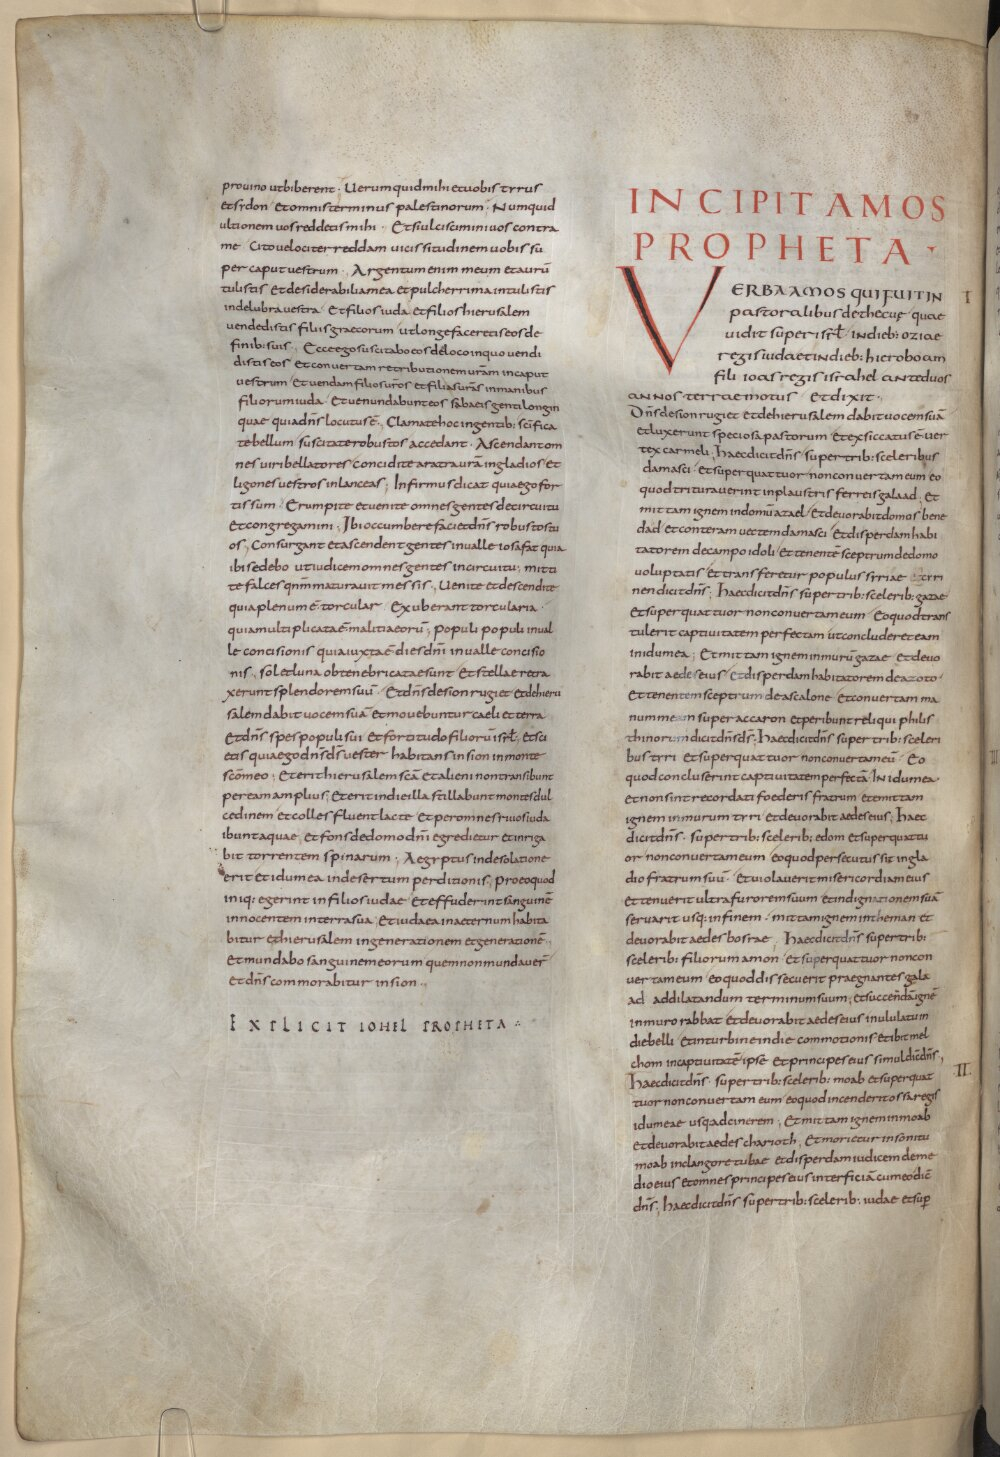 pro uino ut biberent · Uerum quid mihi et uobis tyrus
et sydon et omnis terminus palestinorum · Numquid
ultionem uos reddetis mihi · Et si ulciscimini uos contra
me · cito uelociter reddam uicissitudinem uobis su
per caput uestrum · Argentum enim meum et aurū
tulistis et desiderabilia mea et pulcherrima intulistis
in delubra uestra · Et filios iuda et filios hierusalem
uendedistis filiis graecorum ut longe faceretis eos de
finib: suis · Ecce ego suscitabo eos de loco in quo uendi
distis eos et conuertam retributionem urām in caput
uestrum · Et uendam filios uros et filias urās in manibus
filiorum iuda · Et uenundabunt eos sabaeis genti longin
quae quia dn̄s locutus ē · Clamate hoc in gentib: scifica
te bellum suscitate robustos accedant · Ascendant om
nes uiri bellatores concidite aratra urā in gladios et
ligones uestros in lanceas ; Infirmus dicat quia ego for
tis sum · Erumpite et uenite omnes gentes de circuitu
et congregamini ; Ibi occumbere faciet dn̄s robustos tu
os ; Consurgant et ascendent gentes in ualle iosafat quia
ibi sedebo ut iudicem omnes gentes in circuitu ; mitti
te falces qn̄m maturauit messis · Uenite et descendite
quia plenum ē torcular · Exuberant torcularia ·
quia multiplicata ē malitia eorū ; populi populi in ual
le concisionis quia iuxta ē dies dn̄i in ualle concisio
nis · sol et luna obtenebricatae sunt et stellae retra
xerunt splendorem suū · Et dn̄s de sion rugiet et de hieru
salem dabit uocem suā et mouebuntur caeli et terra
Et dn̄s spes populi sui et fortitudo filiorū isrl̄ et sci
etis quia ego dn̄s d̄s uester habitans in sion in monte
scō meo ; Et erit hierusalem scā et alieni non transibunt
per eam amplius ; Et erit in die illa stillabunt montes dul
cedinem et colles fluent lacte et per omnes riuos iuda
ibunt aquae et fons de domo dn̄i egredietur et inriga
bit torrentem spinarum ; Aegyptus in desolatione
erit et idumea in desertum perditionis ; pro eo quod
iniq: egerint in filios iudae et effuderint sanguinē
innocentem in terra sua ; Et iudaea in aeternum habita
bitur et hierusalem in generationem et generationē ·
Et mundabo sanguinem eorum quem non mundauer̄
et dn̄s commorabitur in sion ·
EXPLICIT IOHEL PROPHETA
INCIPIT AMOS
PROPHETA ·
VERBA AMOS QUI FUIT IN I
pastoralibus de thecuę quae
uidit super isrl̄ · in dieb: oziae
regis iuda et in dieb: hieroboam
fili ioas regis israhel ante duos
annos terrae motus · Et dixit ·
Dn̄s de sion rugiet et de hierusalem dabit uocem suā
et luxerunt speciosa pastorum et exsiccatus ē uer
tex carmeli ; haec dicit dn̄s super trib: sceleribus
damasci · Et super quattuor non conuertam eum eo
quod triturauerint in plaustris ferreis galaad · et
mittam ignem in domū azael et deuorabit domos bene
dad et conteram uectem damasci et disperdam habi
tatorem de campo idoli et tenentē sceptrum de domo
uoluptatis et transferetur populus syriae cyri
nen dicit dn̄s ; haec dicit dn̄s super trib: scelerib: gazae
et super quattuor non conuertam eum eo quod trans
tulerit captiuitatem perfectam ut concluderet eam
in idumea ; Et mittam ignem in murū gazae et deuo
rabit aedes eius et disperdam habitatorem de azoto ·
et tenentem sceptrum de ascalone et conuertam ma
num meam super accaron et peribunt reliqui philis
thinorum dicit dn̄s d̄s ; haec dicit dn̄s super trib: sceleri
bus tyri et super quattuor non conuertam eū · Eo
quod concluserint captiuitatem perfectā in idumea ·
et non sint recordati foederis fratrum et emittam
ignem in murum tyri et deuorabit aedes eius ; haec
dicit dn̄s · super trib: scelerib: edom et super quattu
or non conuertam eum eo quod persecutus sit in gla
dio fratrum suū · et uiolauerit misericordiam eius
et tenuerit ultra furorem suum et indignationem suā
seruarit usq: in finem · mittam ignem in theman et
deuorabit aedes bosrae ; haec dicit dn̄s super trib:
scelerib: filiorum amon et super quattuor non con
uertam eum eo quod dissecuerit praegnantes gala
ad ad dilatandum terminum suum ; et succendā ignē
in muro rabbat et deuorabit aedes eius in ululatum
die belli et in turbine in die commotionis et ibit mel
chom in captiuitatē ipse et principes eius simul dic̄ dn̄s ;
haec dicit dn̄s super trib: scelerib: moab et super quat II
tuor non conuertam eum eo quod incenderit ossa regis
idumeae usq: ad cinerem ; Et mittam ignem in moab
et deuorabit aedes charioth ; Et morietur in sonitu
moab in clangore tubae et disperdam iudicem de me
dio eius et omnes principes eius interficiā cum eo dic̄
dn̄s ; haec dicit dn̄s super trib: scelerib: iudae et sup̄